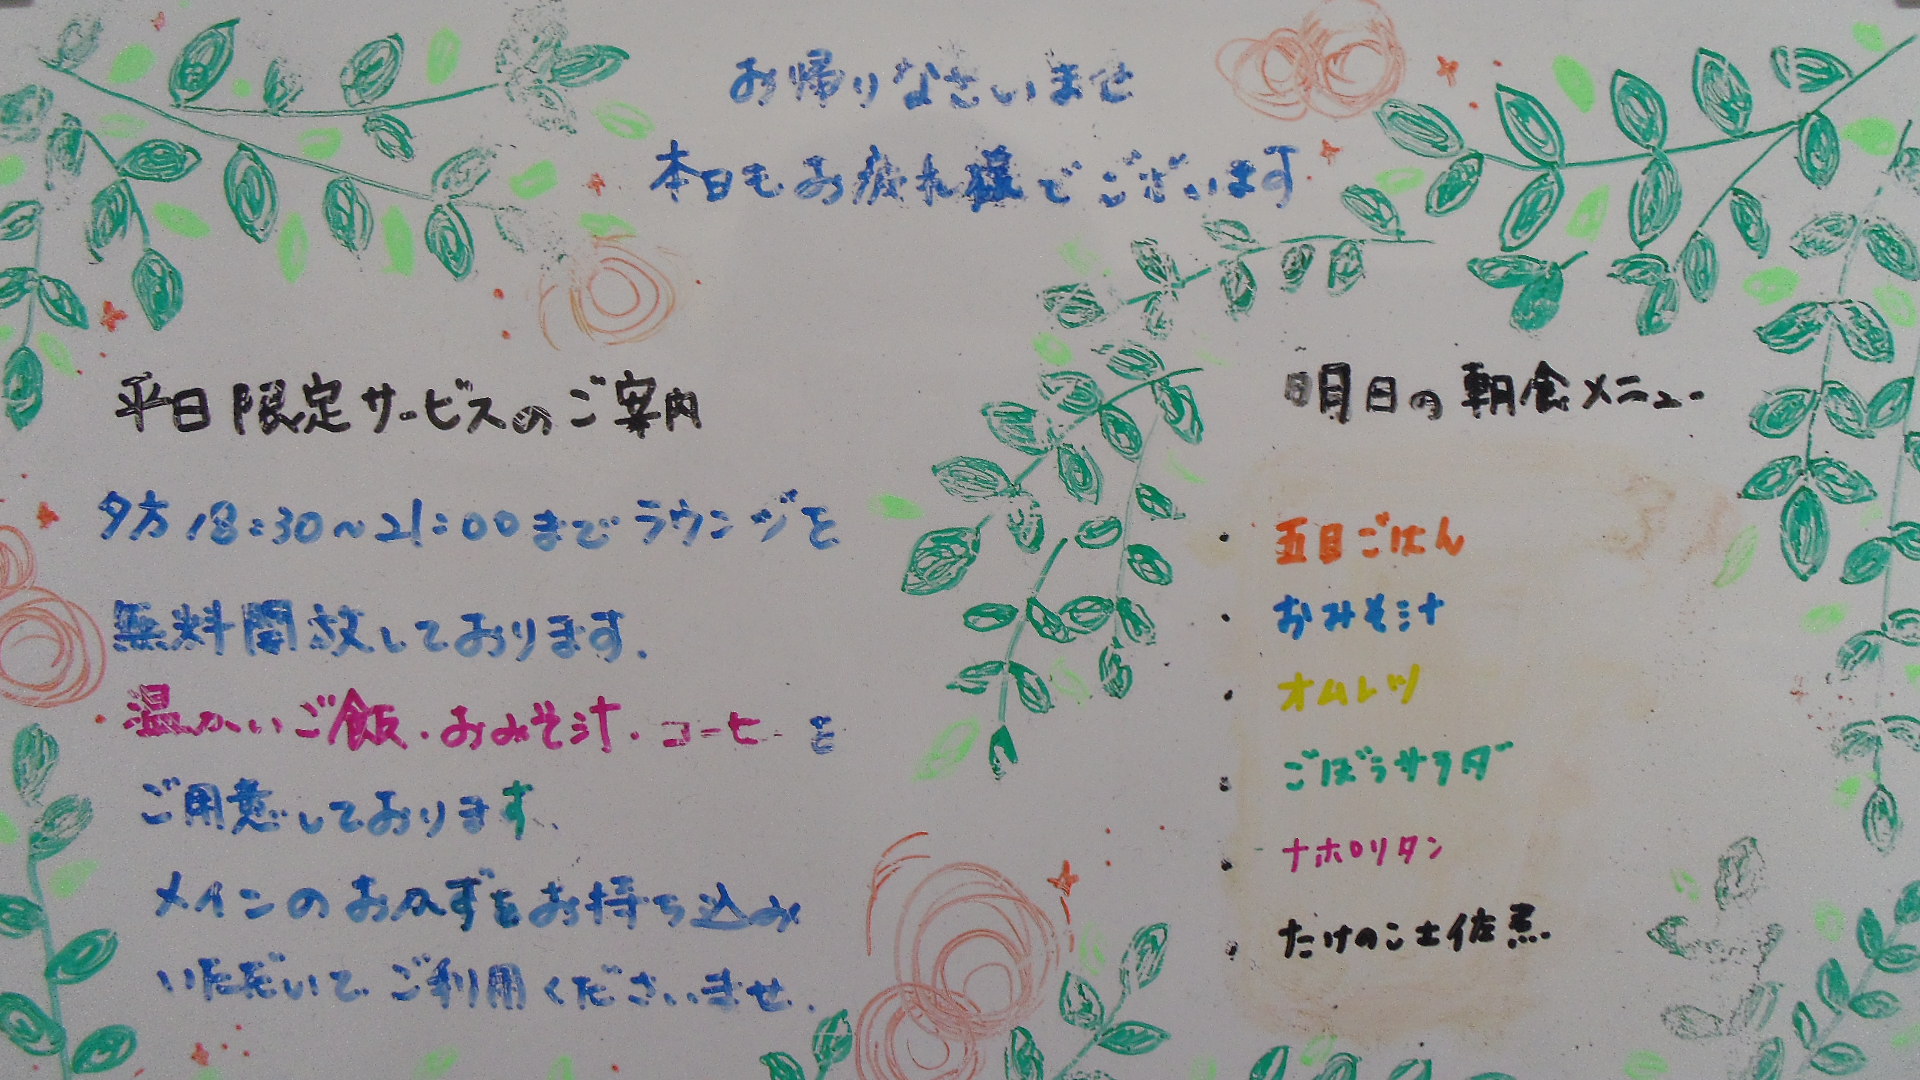 お帰りなさいませ
本日もお疲れ様でございます
平日限定サービスのご案内
夕方18:30~21:00までラウンジを
無料開放しております.
温かいご飯・おみそ汁・コーヒーを
ご用意しております.
メインのおかずをお持ち込み
いただいてご利用くださいませ.
明日の朝食メニュー
・五目ごはん
・おみそ汁
・オムレツ
・ごぼうサラダ
・ナポリタン
・たけのこ土佐煮